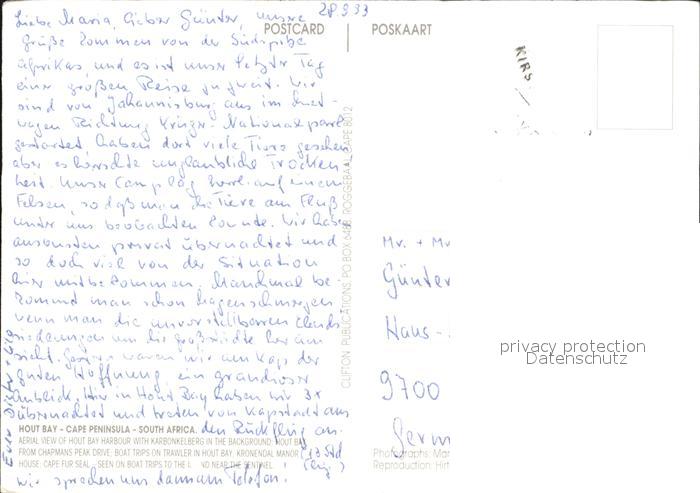 28.9.93
Liebe Maria, lieber Günter, unsere
Grüße kommen von der Südspitze
Afrikas, und es ist unser letzter Tag
einer großen Reise zu zweit. Wir
sind von Johannisburg aus im
wagen Richtung Krüger-Nationalpark
gestartet, haben dort viele Tiere gesehen,
aber es herrschte unglaubliche Trocken-
heit. Unser Camp lag auf einem
Felsen, so daß man die Tiere am Fluß
unter uns beobachten konnte. Wir haben
ansonsten privat übernachtet und
so doch viel von der Situation
hier mitbekommen. Manchmal be-
kommt man schon Magenschmerzen
wenn man die unvorstellbaren Elends
siedlungen um die Großstädte herum
sieht. Gestern waren wir am Kap der
guten Hoffnung, ein grandioser
Anblick. Hier in Hout Bay haben wir 3x
übernachtet und treten von Kapstadt aus
den Rückflug an.
(13 Std
Flug.)
wir sprechen uns dann am Telefon!
POSTCARD
POSKAART
CLIFTON PUBLICATIONS, PO BOX 6458, ROGGEBAAI, CAPE 8012
HOUT BAY - CAPE PENINSULA - SOUTH AFRICA.
AERIAL VIEW OF HOUT BAY HARBOUR WITH KARBONKELBERG IN THE BACKGROUND. HOUT BAY
FROM CHAPMANS PEAK DRIVE. BOAT TRIPS ON TRAWLER IN HOUT BAY. KRONENDAL MANOR
HOUSE. CAPE FUR SEAL - SEEN ON BOAT TRIPS TO THE ND NEAR THE SENTINEL.
KIRS
Mr. + Mr
Günter
Haus-
9700
Germ
privacy protection
Datenschutz
Photographs: Mar
Reproduction: Hirt